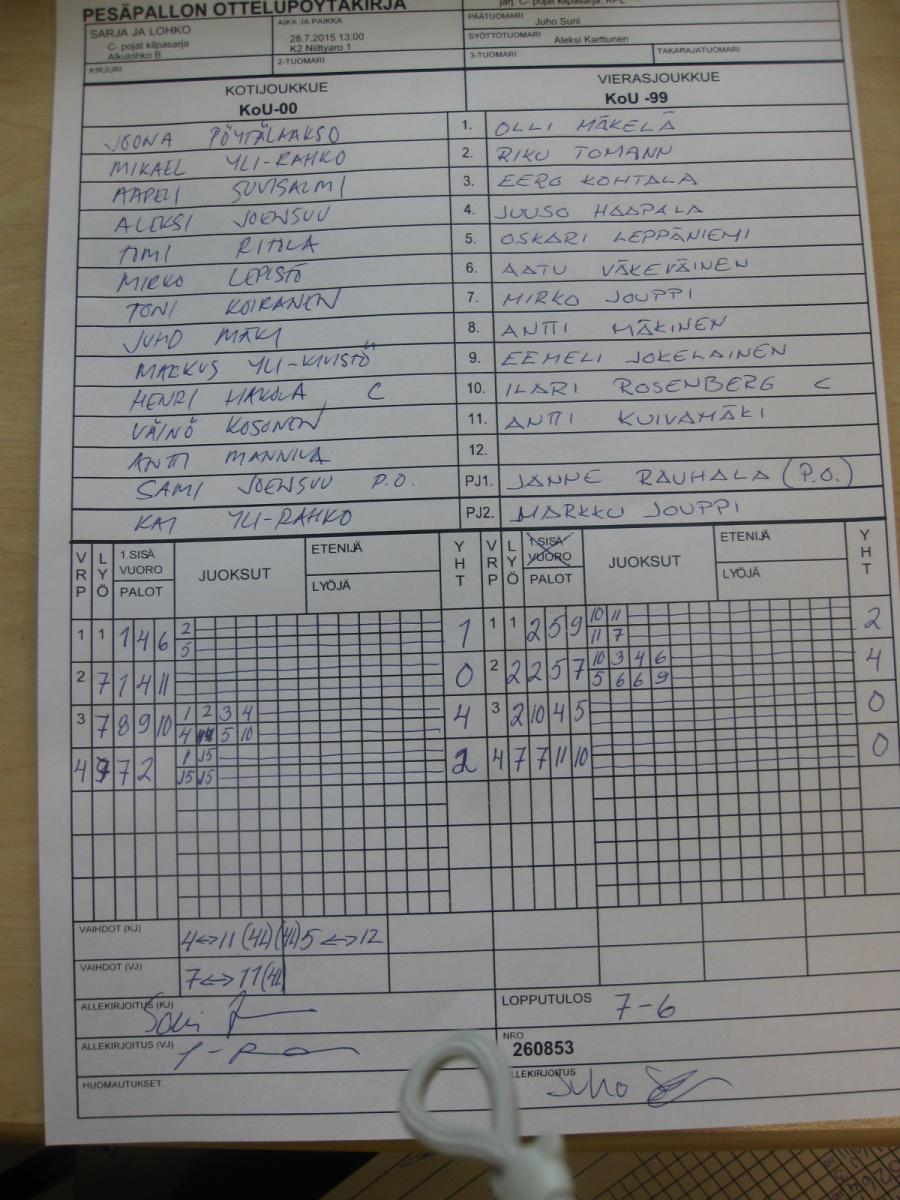 PESÄPALLON OTTELUPÖYTÄKIRJA
SARJA JA LOHKO
C- pojat kilpasarja
Alkulohko B
AIKA JA PAIKKA
28.7.2015 13:00
K2 Niittyaro 1
PÄÄTUOMARI Juho Suni
SYÖTTÖTUOMARI Aleksi Karttunen
KIRJURI 2-TUOMARI 3-TUOMARI TAKARAJATUOMARI
KOTIJOUKKUE VIERASJOUKKUE
KoU-00 KoU -99
JOONA PÖYTÄLAAKSO 1. OLLI MÄKELÄ
MIKAEL YLI-RAHKO 2. RIKU TOMANN
AAPELI SUVISALMI 3. EERO KOHTALA
ALEKSI JOENSUU 4. JUUSO HAAPALA
TIMI RITOLA 5. OSKARI LEPPÄNIEMI
MIRKO LEPISTÖ 6. AATU VÄKEVÄINEN
TONI KOIRANEN 7. MIRKO JOUPPI
JUHO MÄKI 8. ANTTI MÄKINEN
MARKUS YLI-KIVISTÖ 9. EEMELI JOKELAINEN
HENRI HAKOLA C 10. ILARI ROSENBERG C
VÄINÖ KOSONEN 11. ANTTI KUIVAMÄKI
ANTTI MANNILA 12.
SAMI JOENSUU P.O. PJ1. JANNE RAUHALA (P.O.)
KAI YLI-RAHKO PJ2. MARKKU JOUPPI
VRP LYÖ 1.SISÄ VUORO PALOT JUOKSUT ETENIJÄ LYÖJÄ YHT VRP LYÖ 1.SISÄ VUORO PALOT JUOKSUT ETENIJÄ LYÖJÄ YHT
1 1 1 4 6 2 1 1 1 2 5 9 10 11 2
5 11 7
2 7 1 4 11 0 2 2 2 5 7 10 3 4 6 4
5 6 6 9
3 7 8 9 10 1 2 3 4 4 3 2 10 4 5 0
4 5 10
4 7 2 1 15 2 4 7 7 11 10 0
15 15
VAIHDOT (KJ) 4<->11 (4L) (4L) 5 <->12
VAIHDOT (VJ) 7<->11(4L)
ALLEKIRJOITUS (KJ) LOPPUTULOS 7-6
ALLEKIRJOITUS (VJ) NRO
260853
HUOMAUTUKSET LLEKIRJOITUS Juho